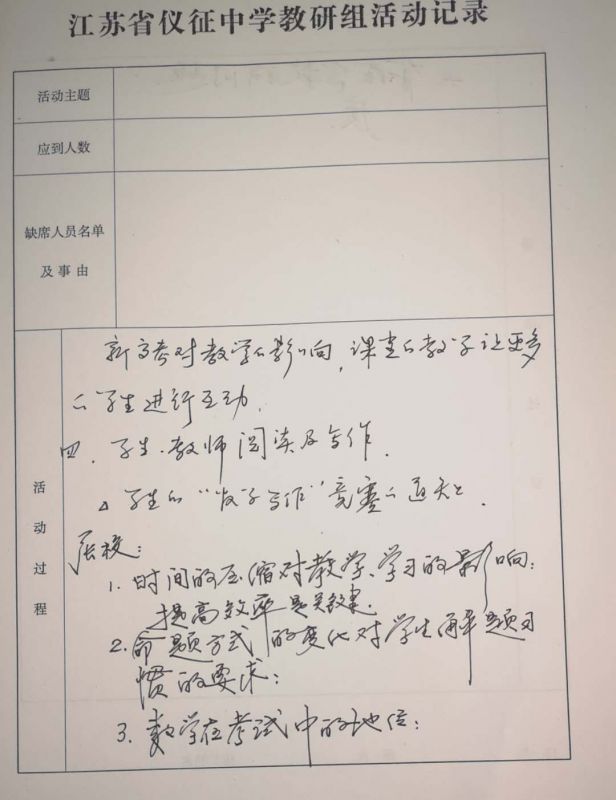 江苏省仪征中学教研组活动记录
活动主题
应到人数
缺席人员名单
及事由
活动过程
新高考对教学的影响,课堂的教学让更多
的学生进行互动.
四.学生.教师阅读及写作.
△学生的“ 写作”竞赛的通知.
张校:
1.时间的压缩对教学、学习的影响:
提高效率是关键.
2.命题方式的变化对学生解题习
惯的要求;
3.数学在考试中的地位: